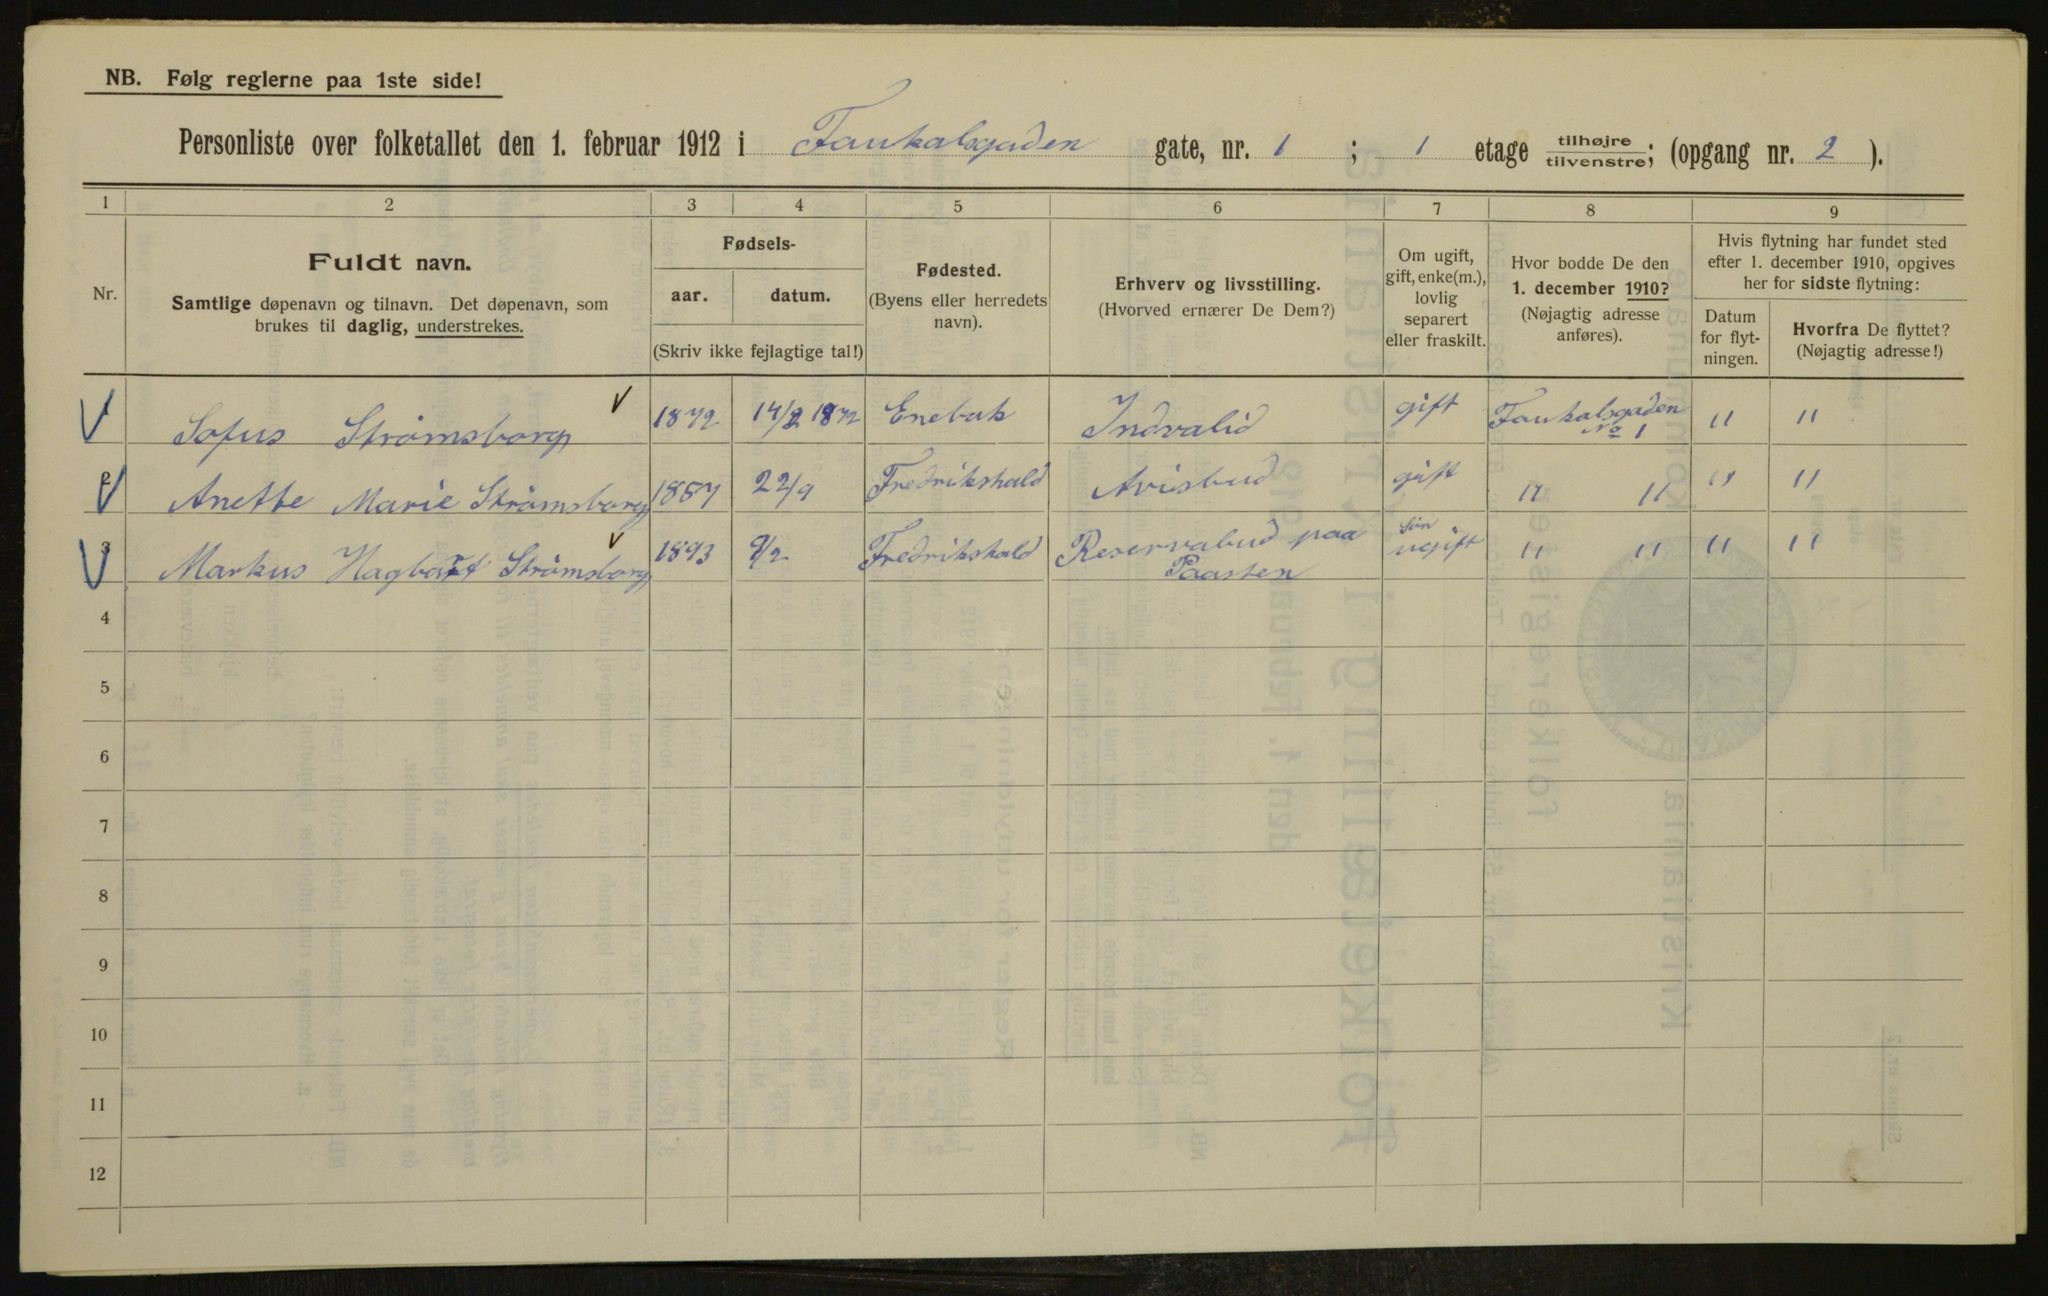 NB. Følg reglerne paa 1ste side!
Personliste over folketallet den 1. februar 1912 i Faukalsgaden gate, nr. 1 ; 1 etage tilhøjre / tilvenstre; (opgang nr. 2 ).
1 2 3 4 5 6 7 8 9
Nr.
Fuldt navn.
Samtlige døpenavn og tilnavn. Det døpenavn, som
brukes til daglig, understrekes.
Fødsels-
aar. datum.
(Skriv ikke fejlagtige tal!)
Fødested.
(Byens eller herredets
navn).
Erhverv og livsstilling.
(Hvorved ernærer De Dem?)
Om ugift,
gift, enke(m.),
lovlig
separert
eller fraskilt.
Hvor bodde De den
1. december 1910?
(Nøjagtig adresse
anføres).
Hvis flytning har fundet sted
efter 1. december 1910, opgives
her for sidste flytning:
Datum
for flyt-
ningen.
Hvorfra De flyttet?
(Nøjagtig adresse!)
1 Sofus Strømsborg 1872 14/2 1872 Enebak Indvalid gift Faukalsgaden No 1 " "
2 Anette Marie Strømsborg 1857 22/9 Fredrikshald Avisbud gift " " " "
3 Markus Hagbart Strømsborg 1893 9/2 Fredrikshald Reservabud paa Paasten Søn ugift " " " "
4
5
6
7
8
9
10
11
12